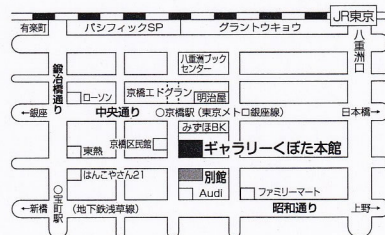 JR東京
有楽町
パシフィックSP
グラントウキョウ
八重洲口
鍛冶橋通り
八重洲ブック
センター
ローソン
京橋エドグラン
明治屋
←銀座
中央通り
○京橋駅(東京メトロ銀座線)
日本橋→
みずほBK
東熱
京橋区民館
ギャラリーくぼた本館
はんこやさん21
別館
Audi
ファミリーマート
○宝町駅
←新橋
(地下鉄浅草線)
昭和通り
上野→